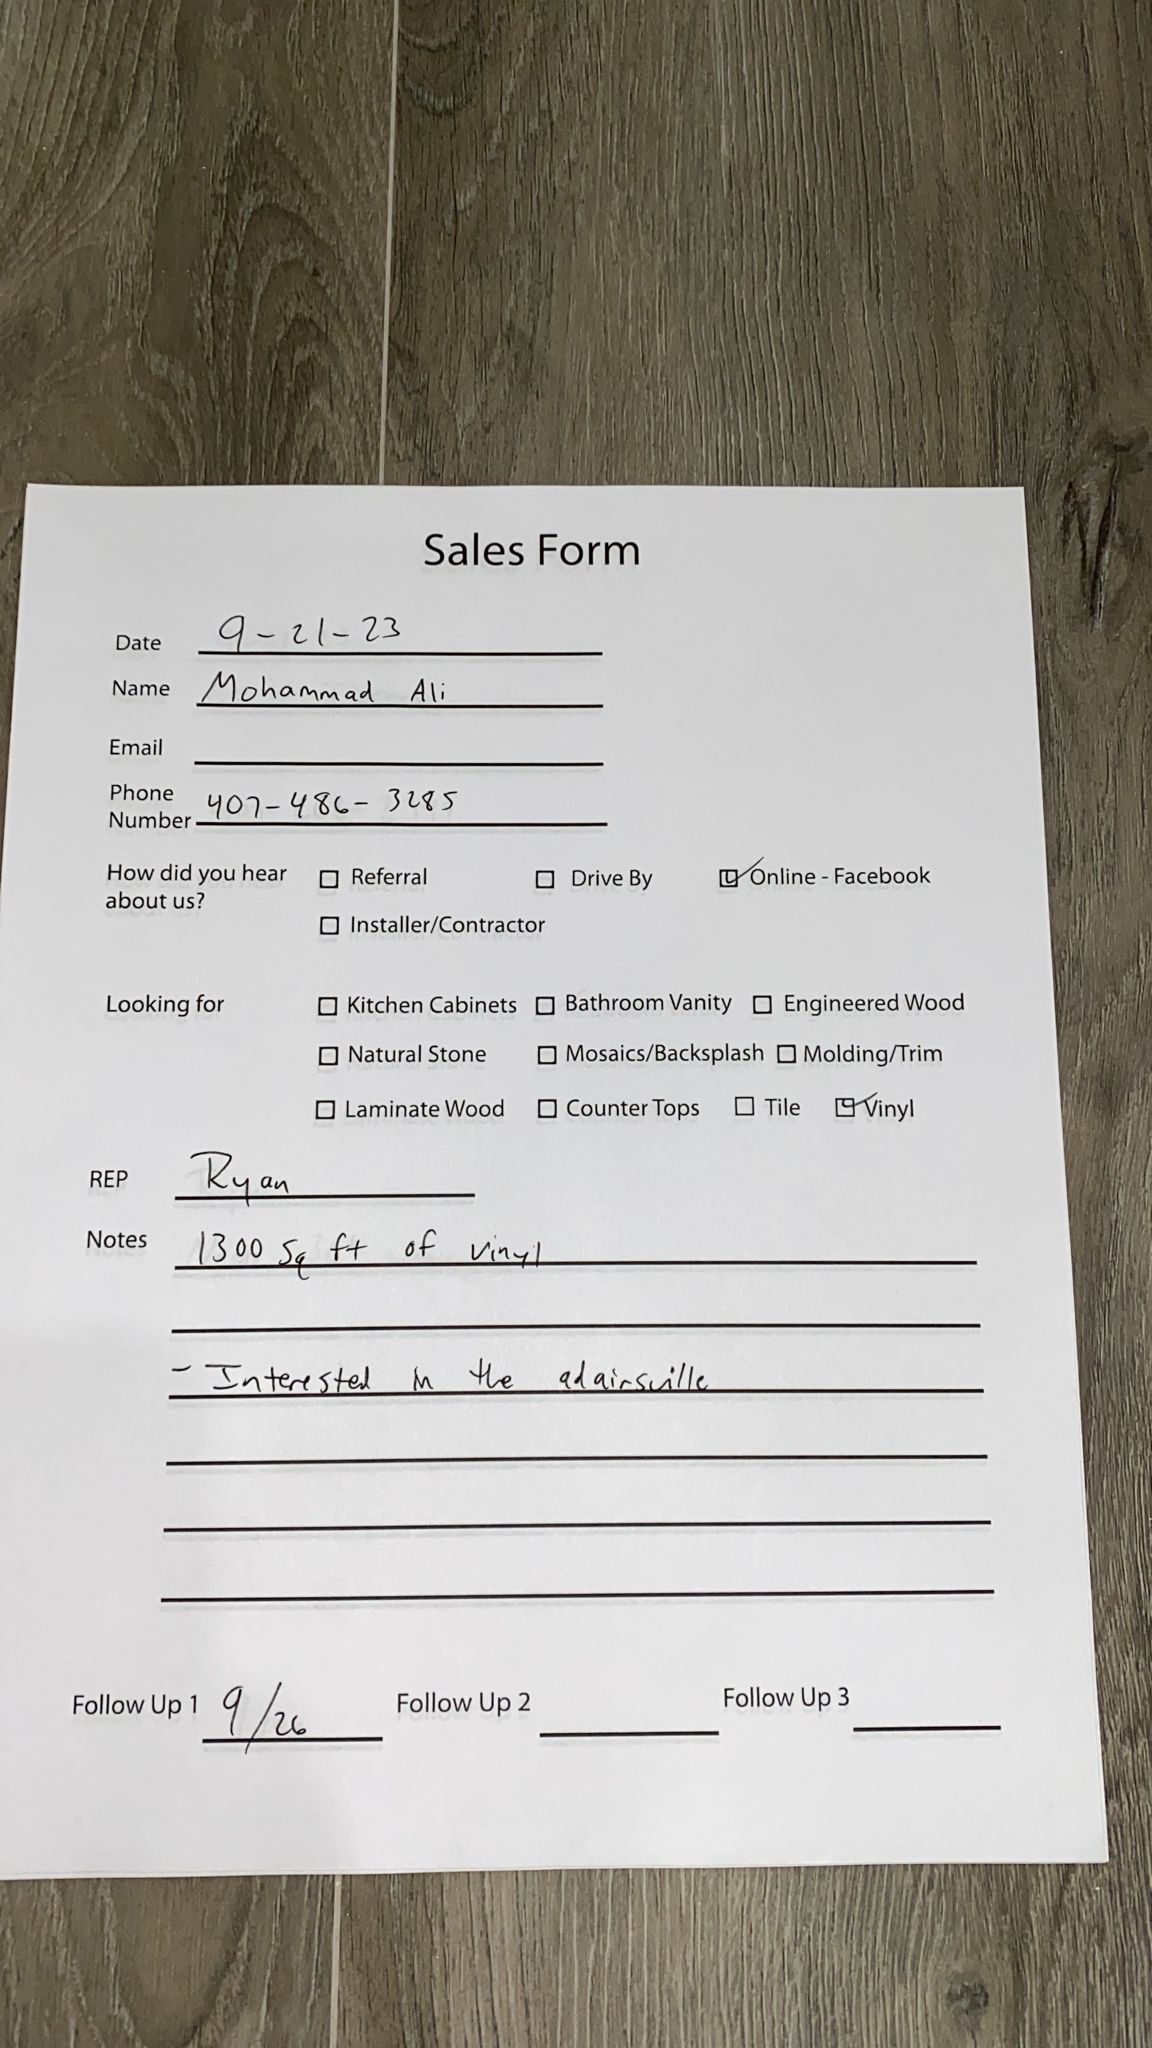 Sales Form
Date 9-21-23
Name Mohammad Ali
Email
Phone
Number 407-486-3285
How did you hear Referral Drive By Online - Facebook
about us? Installer/Contractor
Looking for Kitchen Cabinets Bathroom Vanity Engineered Wood
Natural Stone Mosaics/Backsplash Molding/Trim
Laminate Wood Counter Tops Tile Vinyl
REP Ryan
Notes 1300 sq ft of vinyl
- Interested in the adairsville
Follow Up 1 9/26 Follow Up 2 Follow Up 3